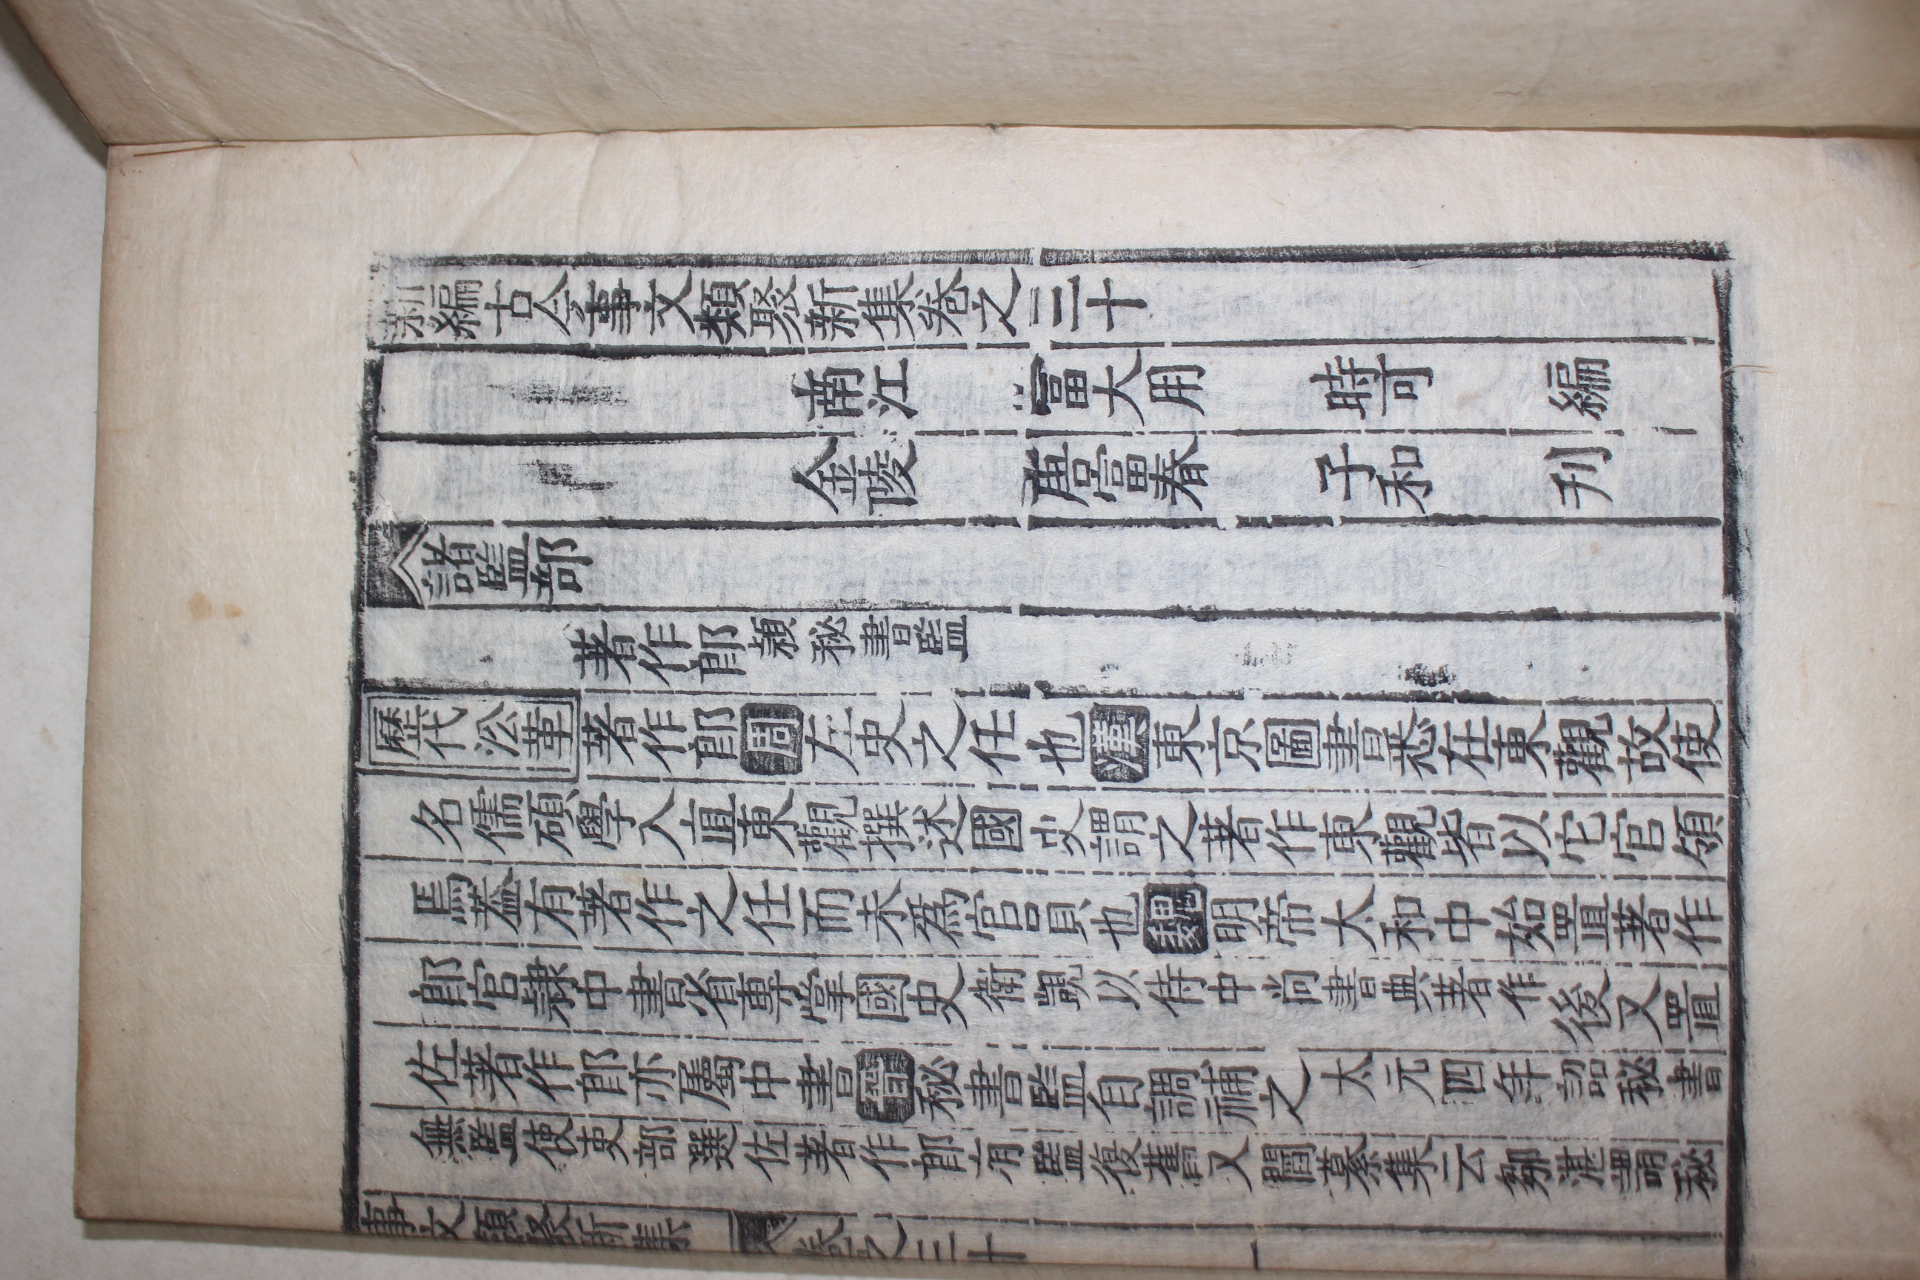 新編古今事文類聚新集卷之三十
南江 富大用 時可 編
金陵 唐富春 子和 刊
諸監部
著作郎 類秘書監
歷代沿革 著作郎周左史之任也漢東京圖書悉在東觀故使
名儒碩學入直東觀撰述國史謂之著作東觀皆以它官領
焉蓋有著作之任而未為官員也魏明帝太和中始置著作
郎官隸中書省專掌國史衛覬以侍中尚書典著作後又置
佐著作郎亦屬中書晉秘書監自調補之太元四年詔秘書
無監使吏部選佐著作郎有監復舊又閻纂集云鄒湛謂秘
事文類聚新集 卷之三十 一